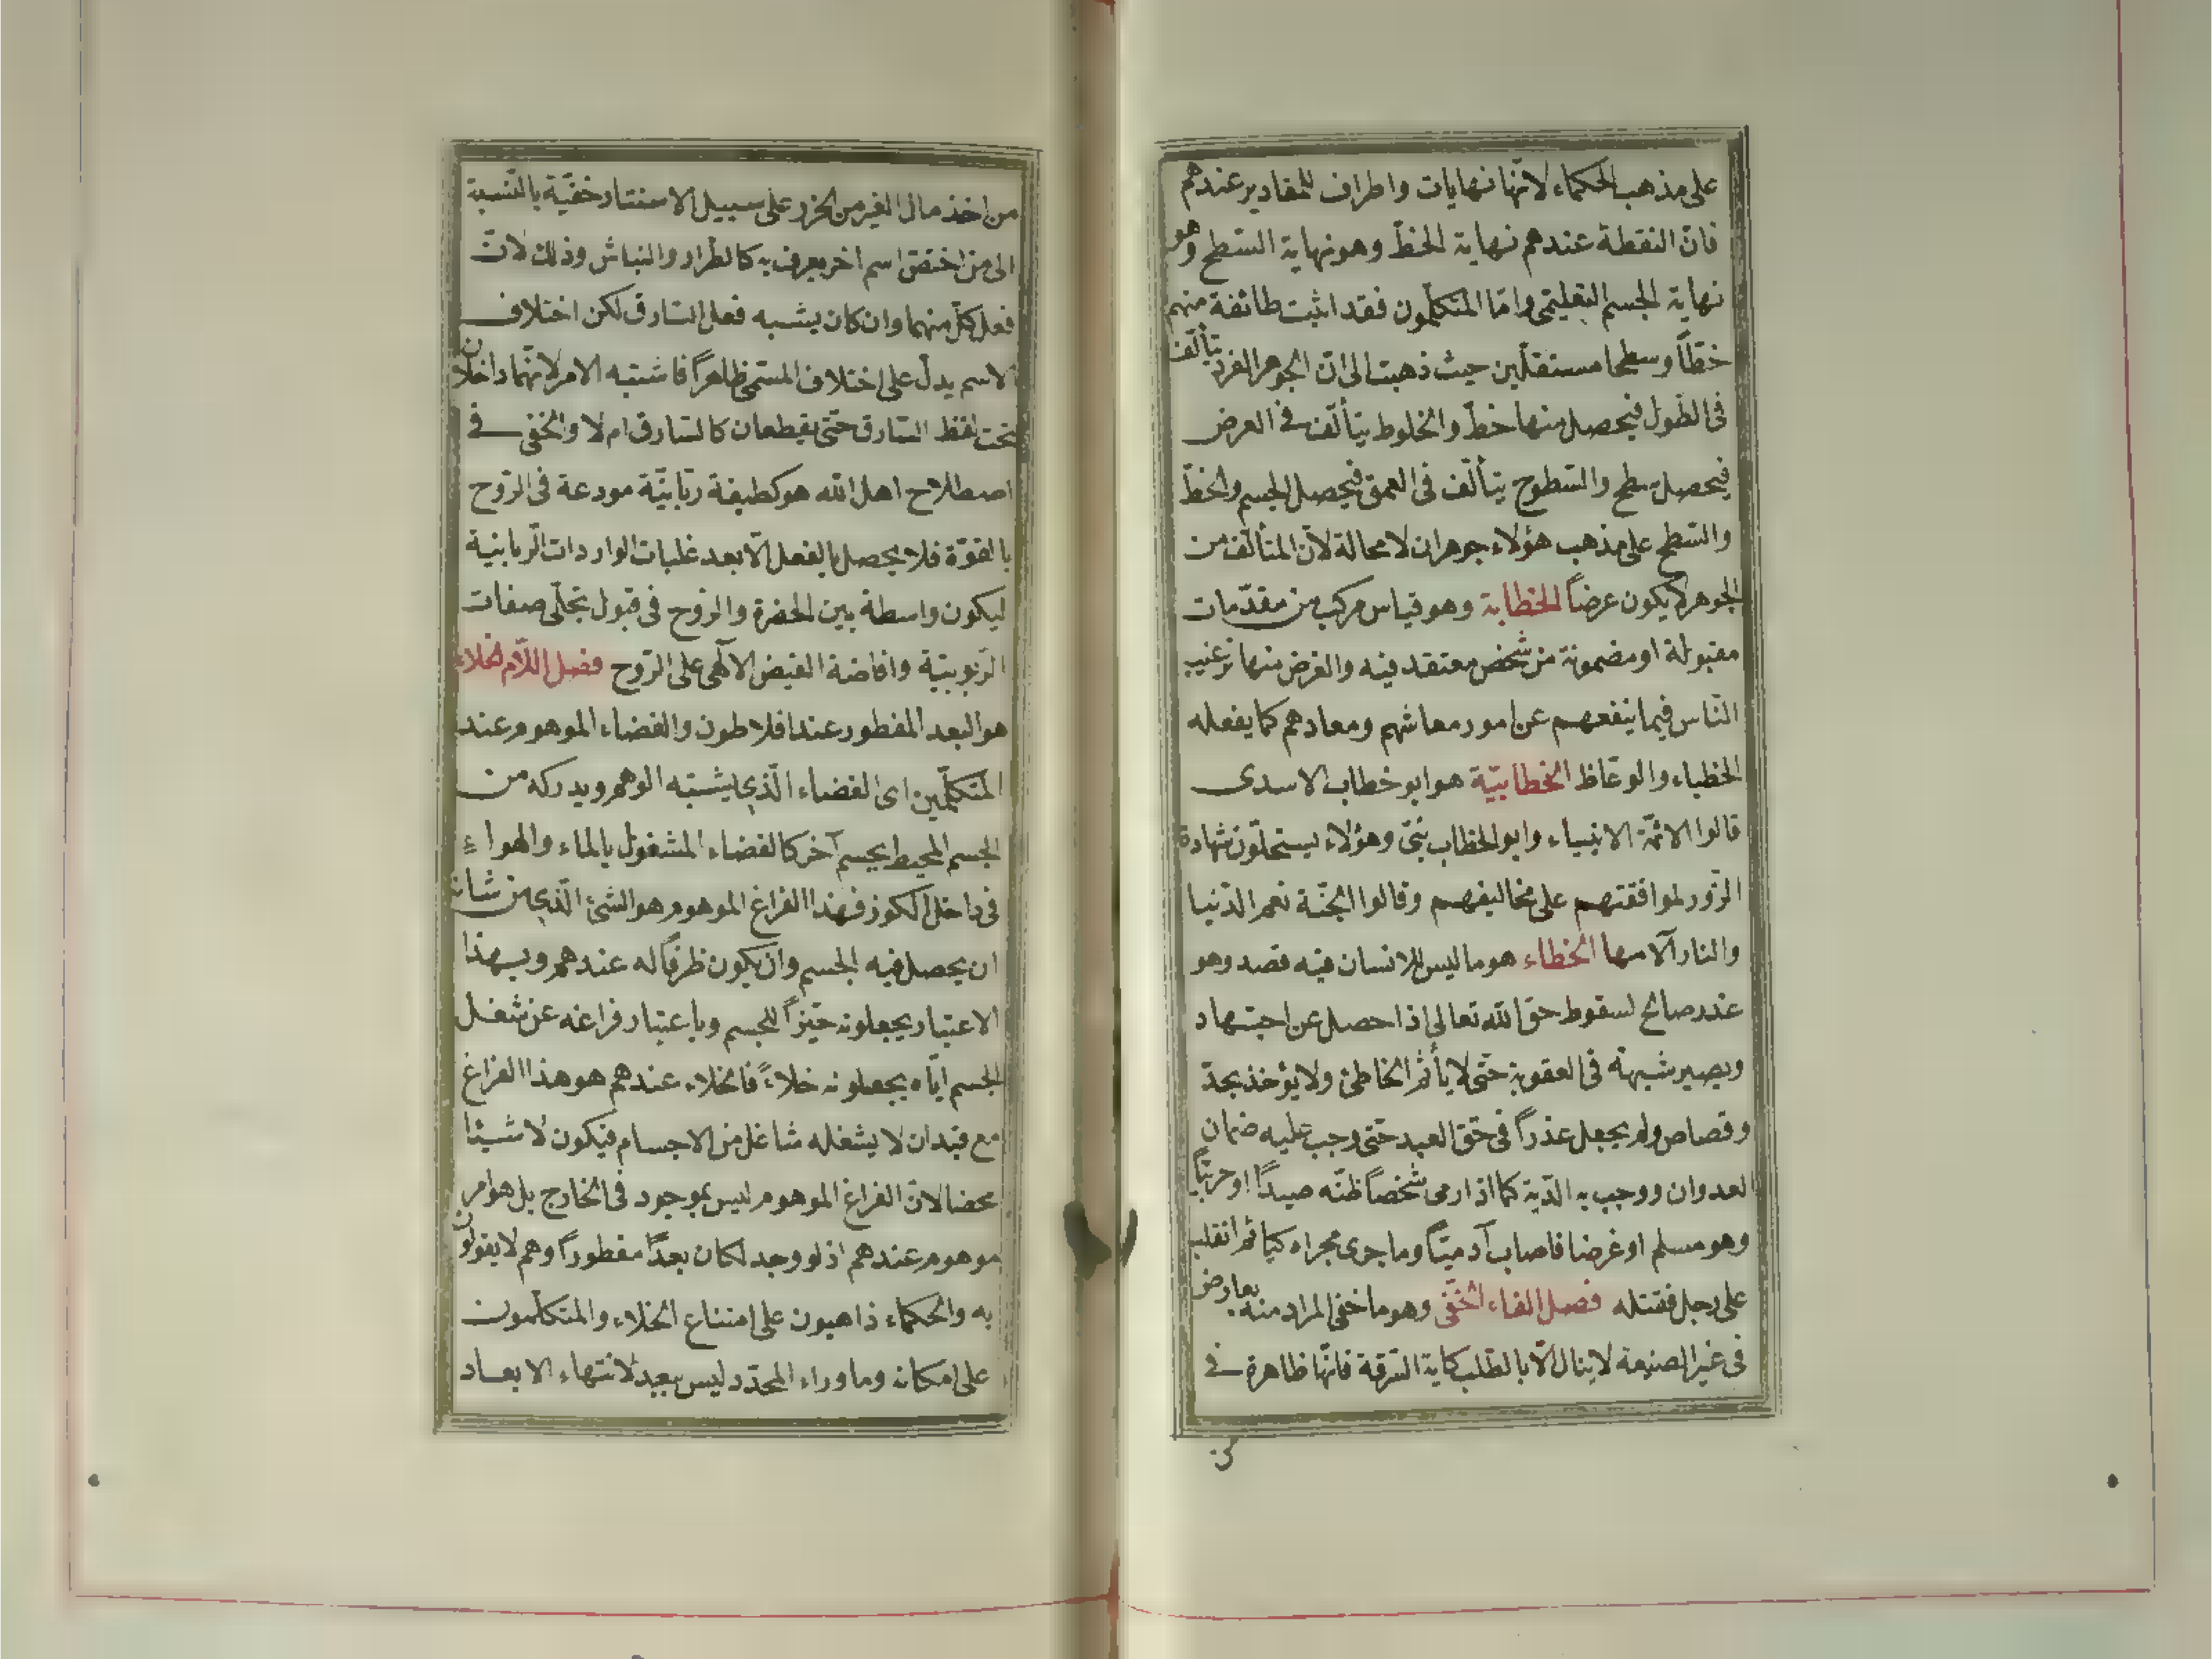 على مذهب الحكماء لانّها نهايات واطراف للمقادير عندهم
فانّ النقطة عندهم نهاية الخطّ وهو نهاية السّطح وهو
نهاية الجسم التعليمى وامّا المتكلّمون فقد اثبت طائفة منهم
خطّاً وسطحا مستقلّين حيث ذهبت الى انّ الجوهر الفرد يتألّف
فى الطّول فيحصل منها خطّ والخطوط يتألّف فى العرض
فيحصل سطح والسّطوح يتألّف فى العمق فيحصل الجسم والخطّ
والسّطح على مذهب هؤلاء جوهران لا محالة لانّ المتألّف من
الجوهر لا يكون عرضاً الخطابة وهو قياس مركب من مقدّمات
مقبولة او مضمونة من شخص معتقد فيه والغرض منها ترغيب
النّاس فيما ينفعهم عن امور معاشهم ومعادهم كما يفعله
الخطباء والوعّاظ الخطابيّة هو ابو خطاب الاسدى
قالوا الائمّة الانبياء وابو الخطاب نبّى وهؤلاء يستحلّون شهادة
الزّور لموافقتهم على مخاليفهم وقالوا الجنّة نعم الدّنيا
والنار آلامها الخطاء هو ما ليس للانسان فيه قصد وهو
عذر صالح لسقوط حق الله تعالى اذا حصل عن اجتهاد
ويصير شبهة فى العقوبة حتّى لا يأثم الخاطئ ولا يؤخذ بحدّ
وقصاص ولم يجعل عذراً فى حّق العبد حتى وجب عليه ضمان
العدوان ووجب به الدّية كما اذا رمى شخصاً ظنّه صيداً او حربيّاً
وهو مسلم او غرضا فاصاب آدميّاً وما جرى مجراه كنائم انقلب
على رجل فقتله فصل الفاء الخفّى وهو ما خفى المراد منه بعارض
فى غير الصنيعة لا ينال الّا بالطّلب كاية السّرقة فانّها ظاهرة فى
من اخذ مال الغير من الحرز على سبيل الاستتار خفيّة بالنّسبة
الى من اختصّ اسم اخر يعرف به كالطرار والنباش وذلك لانّ
فعل كلّ منهما وان كان يشبه فعل السّارق لكن اختلاف
الاسم يدلّ على اختلاف المسمّى ظاهراً فاشتبه الامر لانّهما داخلان
تحت لفظ السّارق حتّى يقطعان كالسّارق ام لا والخفى فى
اصطلاح اهل الله هو كطيفة ربّانيّة مودعة فى الرّوح
بالقوّة فلا يحصل بالفعل الّا بعد غلبات الواردات الرّبانية
ليكون واسطة بين الحضرة والروح فى قبول تجلّى صفات
الرّبوبيّة وافاضة الفيض الآلهى على الرّوح فصل اللّام الخلاء
هو البعد المفطور عند افلاطون والفضاء الموهوم عند
المتكلّمين اى الفضاء الّذى يشبته الوهم ويدركه من
الجسم المحيط بجسم آخر كالفضاء المشغول بالماء والهواء
فى داخل الكوز فهذا الفراغ الموهوم هو الشئ الّذى من شانه
ان يحصل فيه الجسم وان يكون ظرفاً له عندهم وبهذا
الاعتبار يجعلونه حيّزاً للجسم وباعتبار فراغه عن شغل
الجسم ايّاه يجعلونه خلاءً فالخلاء عندهم هو هذا الفراغ
مع قيد ان لا يشغله شاغل من الاجسام فيكون لا شيئا
محضا لانّ الفراغ الموهوم ليس بموجود فى الخارج بل هو امر
موهوم عندهم اذ لو وجد لكان بعداً مفطوراً وهم لا يقولون
به والحكماء ذاهبون على امتناع الخلاء والمتكلّمون
على امكانه وما وراء المحدّد ليس ببعيد لانتهاء الابعاد